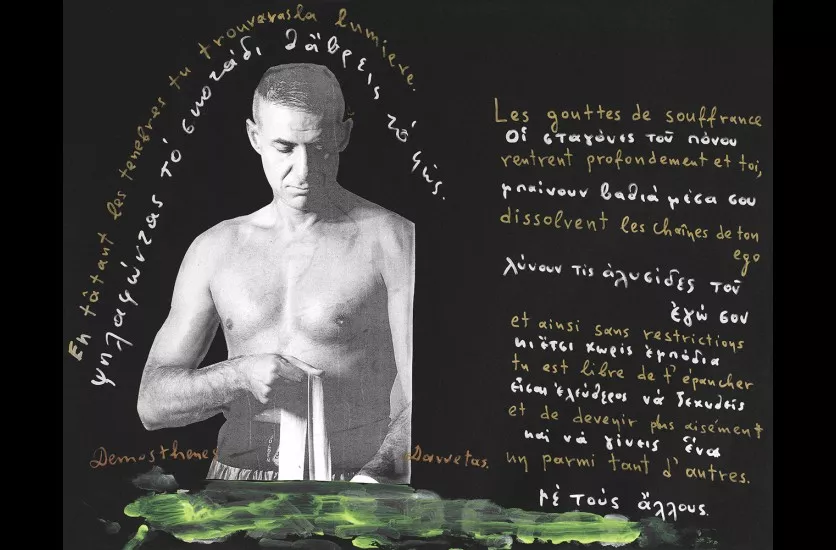 En tâtant les tenèbres tu trouveras la lumiere.
ψηλαφώντας τό σκοτάδι θἄβρεις τό φῶς.
Les gouttes de souffrance
Οἱ σταγόνες τοῦ πόνου
rentrent profondement et toi,
μπαίνουν βαθιά μέσα σου
dissolvent les chaînes de ton
ego
λύνουν τίς ἁλυσίδες τοῦ
ἐγώ σου
et ainsi sans restrictions
κι ἔτσι χωρίς ἐμπόδια
tu est libre de t'épancher
εἶσαι ἐλεύθερος νά ξεχυθεῖς
et de devenir plus aisément
καί νά γίνεις ἕνα
un parmi tant d'autres.
μέ τούς ἄλλους.
Demosthenes Davvetas.